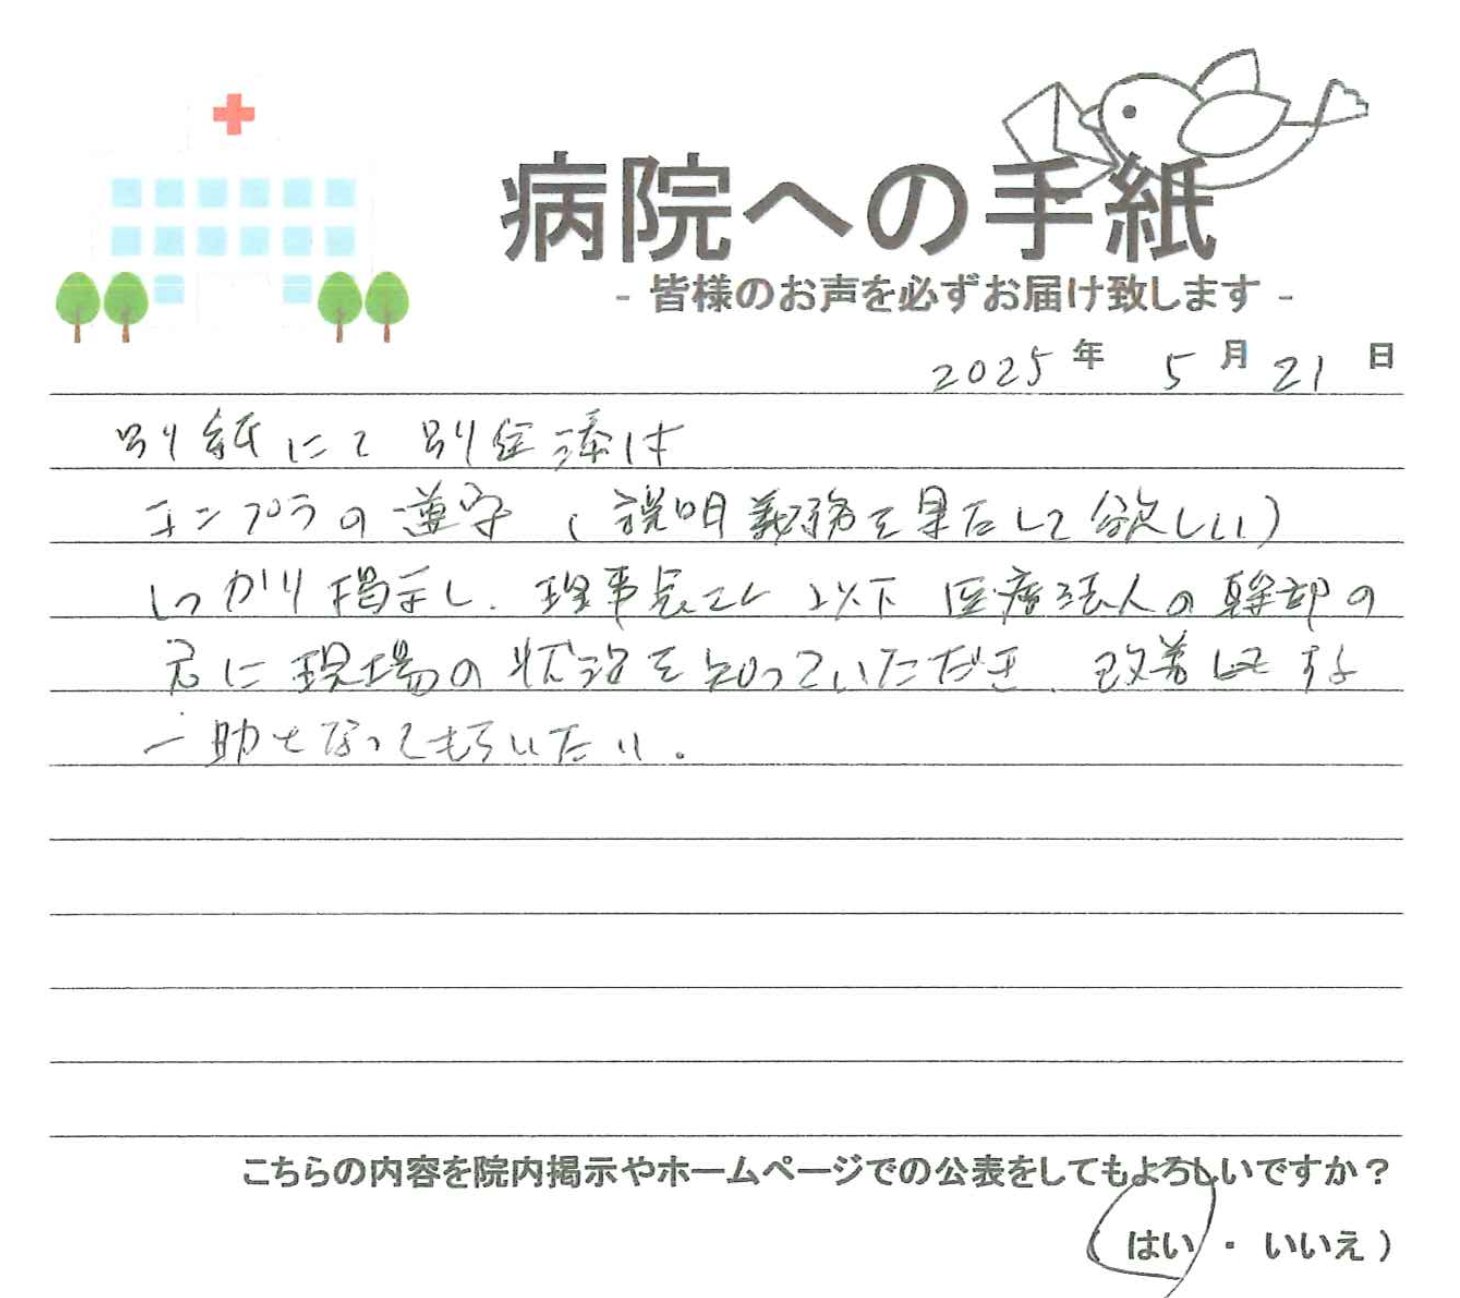 病院への手紙
- 皆様のお声を必ずお届け致します -
2025年 5月21日
別紙にて 別途添付
コンプラの遵守 (説明義務を果たして欲しい)
しっかり掲示し、理事長さん 以下 医療法人の幹部の
元に現場の状況を知っていただき、改善
一助となってもらいたい。
こちらの内容を院内掲示やホームページでの公表をしてもよろしいですか?
(はい ・ いいえ)